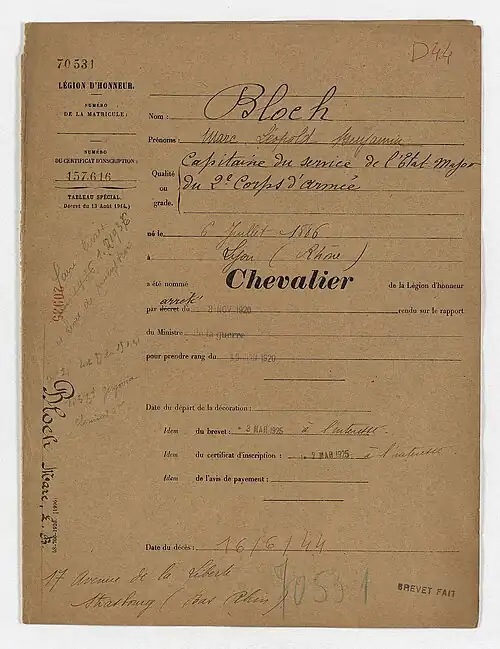 70531
D44
LÉGION D'HONNEUR.
NUMÉRO
DE LA MATRICULE:
NUMÉRO
DU CERTIFICAT D'INSCRIPTION:
157.616
TABLEAU SPÉCIAL.
Décret du 13 Août 1914.
Nom: Bloch
Prénoms: Marc Léopold Benjamin
Qualité ou grade. Capitaine du service de l'État Major
du 2e Corps d'armée
né le 6 Juillet 1886
à Lyon (Rhône)
a été nommé Chevalier de la Légion d'honneur
arrêté
par décret du 8 NOV 1920 rendu sur le rapport
du Ministre de la guerre
pour prendre rang du 1920
Date du départ de la décoration:
Idem du brevet: 3 MAR 1925 à l'interessé
Idem du certificat d'inscription: 2 MAR 1925 à l'interessé
Idem de l'avis de payement:
Date du décès: 16/6/44
17 Avenue de la Liberté
Strasbourg (Bas Rhin)
70531
BREVET FAIT
Bloch Marc, L. B.